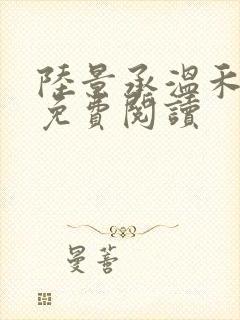 陸景承溫禾
免費閱讀
曼薈